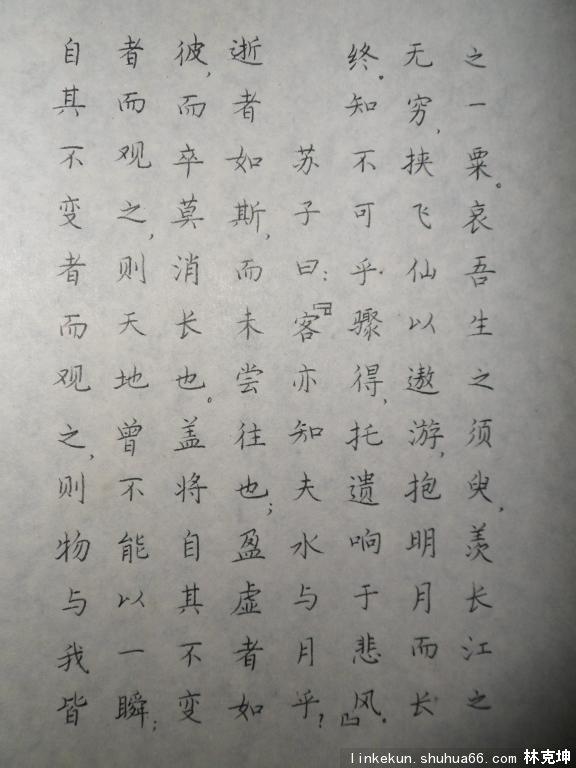 之一粟。哀吾生之须臾，羡长江之
无穷，挟飞仙以遨游，抱明月而长
终。知不可乎骤得，托遗响于悲风。』
苏子曰：『客亦知夫水与月乎？
逝者如斯，而未尝往也；盈虚者如
彼，而卒莫消长也。盖将自其不变
者而观之，则天地曾不能以一瞬；
自其不变者而观之，则物与我皆
linkekun.shuhua66.com 林克坤